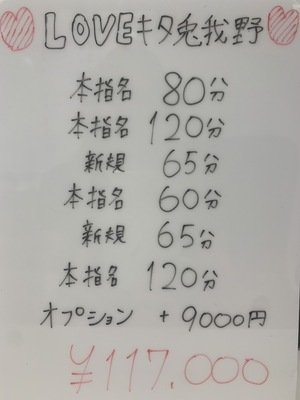 LOVEキタ兎我野
本指名 80分
本指名 120分
新規 65分
本指名 60分
新規 65分
本指名 120分
オプション +9000円
¥117.000